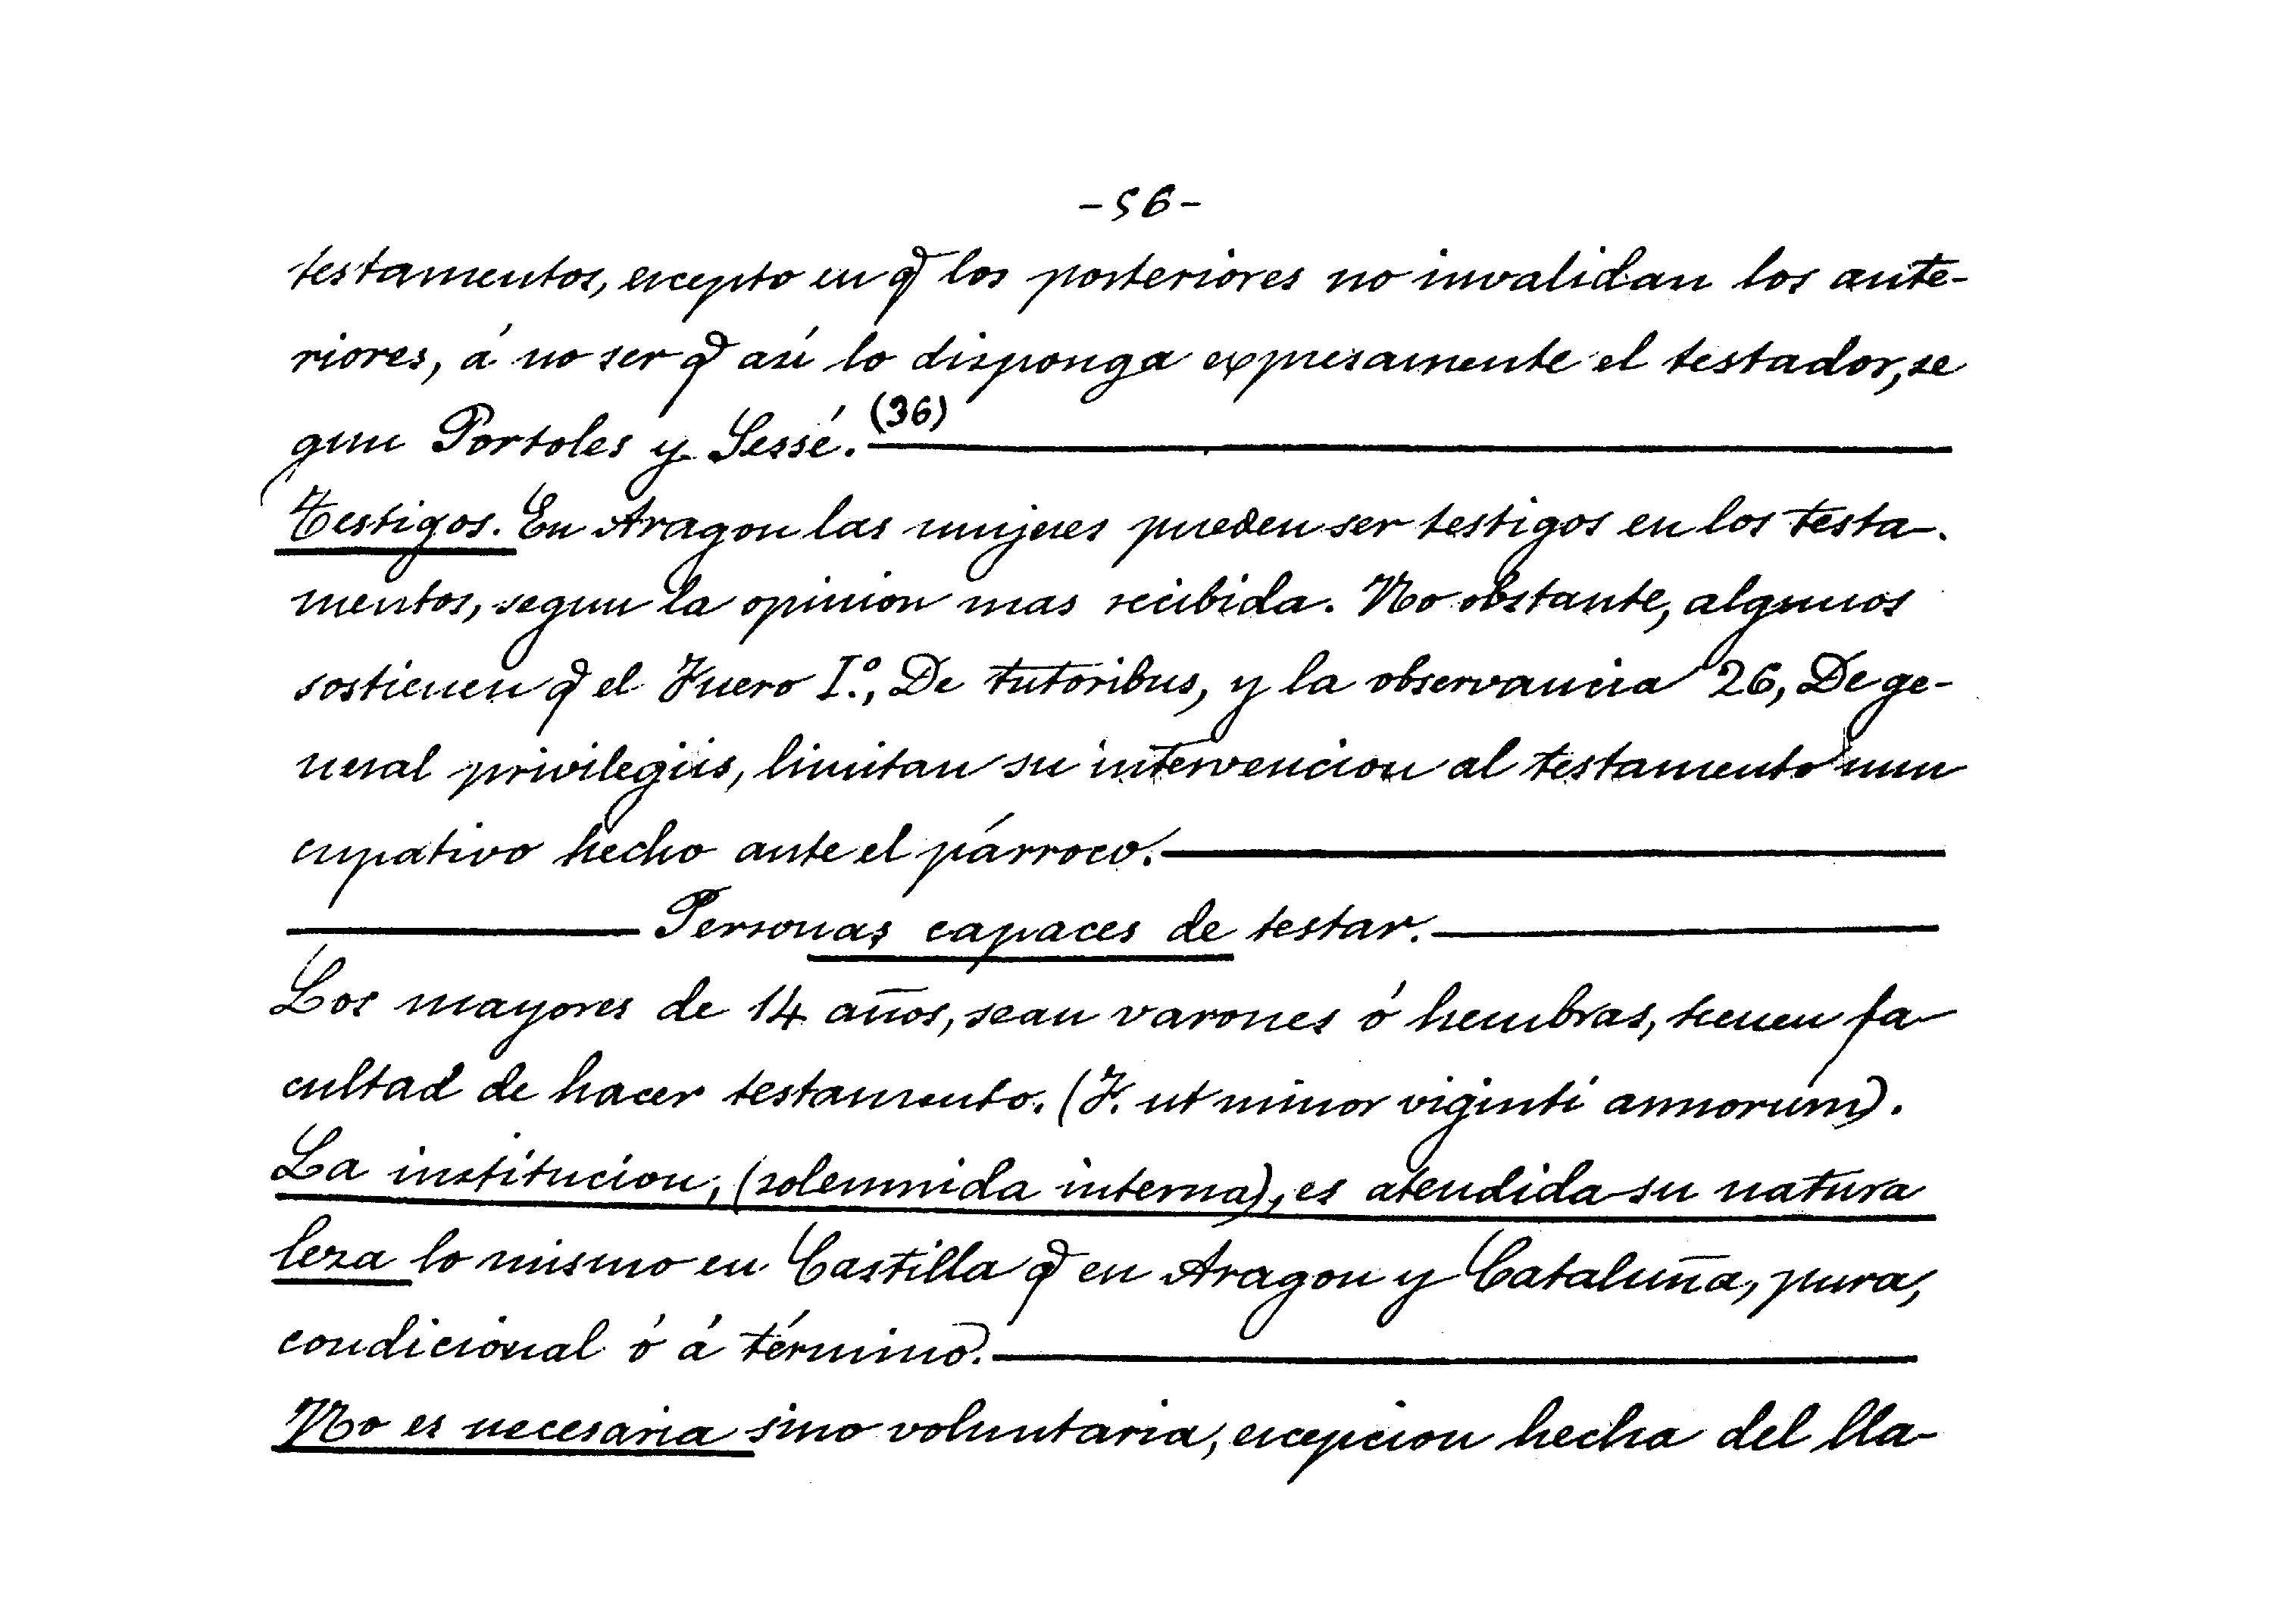 -56-
testamentos, excepto en q̃ los posteriores no invalidan los ante-
riores, á no ser q̃ así lo disponga expresamente el testador, se
gun Portoles y Sessé. (36)
Testigos. En Aragon las mujeres pueden ser testigos en los testa-
mentos, segun la opinion mas recibida. No obstante, algunos
sostienen q̃ el Fuero I.º, De tutoribus, y la observancia 26, De ge-
neral privilegiis, limitan su intervencion al testamento nun
cupativo hecho ante el párroco.
Personas capaces de testar.
Los mayores de 14 años, sean varones ó hembras, tienen fa
cultad de hacer testamento. (F. ut minor viginti annorum).
La institucion, (solemnida interna), es atendida su natura
leza lo mismo en Castilla q̃ en Aragon y Cataluña, pura,
condicional ó á término.
No es necesaria sino voluntaria, excepcion hecha del lla-